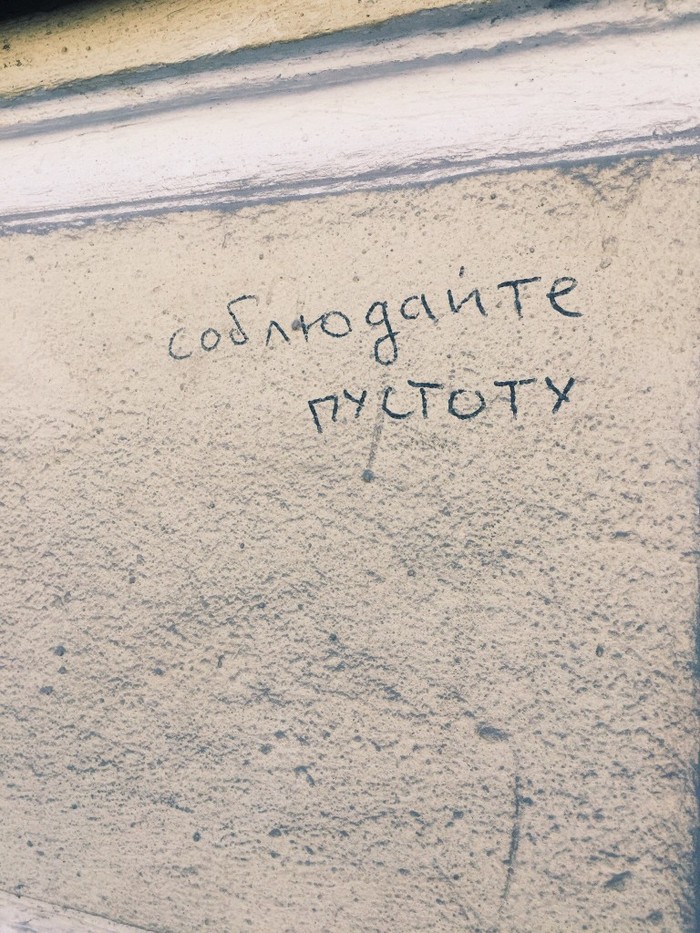 соблюдайте
пустоту